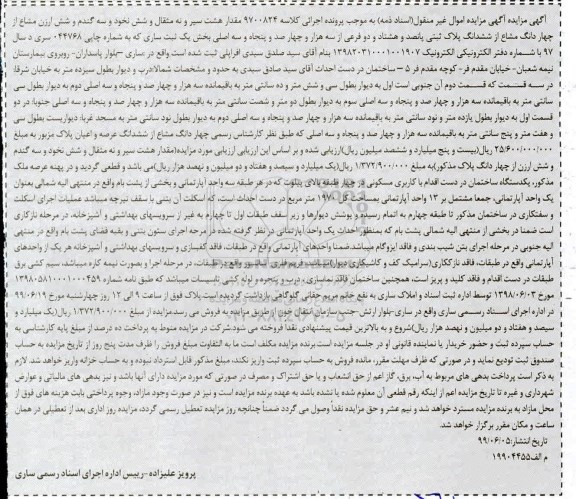 آگهی مزایده آگهی مزایده اموال غیر منقول(اسناد ذمه) به موجب پرونده اجرائی کلاسه ۹۷۰۰۸۲۴ مقدار هشت سیر و نه مثقال و شش نخود و سه گندم و شش ارزن مشاع از
چهار دانگ مشاع از ششدانگ پلاک ثبتی پانصد و هشتاد و دو فرعی از سه هزار و چهار صد و پنجاه و سه اصلی بخش یک ثبت ساری که به شماره چاپی ۰۴۴۷۶۸ سری د سال
۹۷ با شماره دفتر الکترونیکی الکترونیک ۱۳۹۸۲۰۳۱۰۰۰۱۰۰۱۹۰۷ بنام آقای سید صادق سیدی افراپلی ثبت شده است واقع در ساری –بلوار پاسداران- روبروی بیمارستان
نیمه شعبان- خیابان مقدم فر- کوچه مقدم فر ۵ – ساختمان در دست احداث آقای سید صادق سیدی به حدود و مشخصات شمالا:درب و دیوار بطول سیزده متر به خیابان شرقا:
در سه قسمت که قسمت دوم آن جنوبی است اول به دیوار بطول سی و شش متر و ده سانتی متر به باقیمانده سه هزار و چهار صد و پنجاه و سه اصلی دوم به دیوار بطول سی
سانتی متر به باقیمانده سه هزار و چهار صد و پنجاه و سه اصلی سوم به دیوار بطول دو متر و شصت سانتی متر به باقیمانده سه هزار و چهار صد و پنجاه و سه اصلی جنوبا: در دو
قسمت اول به دیوار بطول یازده متر و نود سانتی متر به باقیمانده سه هزار و چهار صد و پنجاه و سه اصلی دوم به دیوار بطول نود سانتی متر به مسجد غربا: دیواریست بطول سی
و هفت متر و پنج سانتی متر به باقیمانده سه هزار و چهار صد و پنجاه و سه اصلی که طبق نظر کارشناس رسمی چهار دانگ مشاع از ششدانگ عرصه و اعیان پلاک مزبور به مبلغ
۲۵/۶۰۰/۰۰۰/۰۰۰ ریال(بیست و پنج میلیارد و ششصد میلیون ریال)ارزیابی شده و بر اساس این ارزیابی ارزیابی مورد مزایده(مقدار هشت سیر و نه مثقال و شش نخود و سه گندم
و شش ارزن از چهار دانگ پلاک مذکور)به مبلغ ۱/۳۷۲/۹۰۰/۰۰۰ ریال(یک میلیارد و سیصد و هفتاد و دو میلیون و نهصد هزار ریال)می باشد و قطعی گردید و در پهنه عرصه ملک
مذکور، یکدستگاه ساختمان در دست اقدام با کاربری مسکونی در چهار طبقه بالای پیلوت که در هر طبقه سه واحد آپارتمانی و بخشی از پشت بام واقع در منتهی الیه شمالی بعنوان
یک واحد آپارتمانی، جمعا مشتمل بر ۱۳ واحد آپارتمانی بمساحت کل ۱۹۷۰ متر مربع در دست احداث است، که اسکلت آن بتنی با سقف تیرچه میباشد عملیات اجرای اسکلت
و سفتکاری در ساختمان مذکور تا طبقه چهارم به اتمام رسیده و پوشش دیوارها و زیر سقف طبقات اول تا چهارم به غیر از سرویسهای بهداشتی و آشپزخانه، در مرحله نازکاری
است ضمنا در بخشی از منتهی الیه شمالی پشت بام که بمنظور احداث یک واحد آپارتمانی در نظر گرفته شده در مرحله اجرای ستون بتنی و بقیه فضای پشت بام واقع در منتهی
الیه جنوبی در مرحله اجرای بتن شیب بندی و فاقد ایزوگام میباشد.ضمنا واحدهای آپارتمانی واقع در طبقات، فاقد کفسازی و سرویسهای بهداشتی و آشپزخانه هر یک از واحدهای
آپارتمانی واقع در طبقات، فاقد نازککاری(سرامیک کف و کاشیکاری طبقات، در مرحله اجرا و بصورت نیمه کاره میباشد، سیم کشی برق
طبقات در دست اقدام و فاقد کلید و پریز است، همچنین ساختمان فاقد نماسازی ، درب و پنجره و لوله کشی تاسیسات میباشد که طبق نامه شماره ۱۳۹۸۰۵۸۱۰۰۰۱۰۰۰۴۵۹
مورخ ۱۳۹۸/۰۶/۰۳ توسط اداره ثبت اسناد و املاک ساری به نفع خانم مریم حقانی گلوگاهی بازداشت گردیده است پلاک فوق از ساعت ۹ الی ۱۲ روز چهارشنبه مورخ ۹۹/۰۶/۱۹
در اداره اجرای اسناد رسمی ساری واقع در ساری-بلوار ارتش -جنب سازمان انتقال خون از طریق مزایده به فروش می رسد.مزایده از مبلغ ۱/۳۷۲/۹۰۰/۰۰۰ ریال(یک میلیارد و
سیصد و هفتاد و دو میلیون و نهصد هزار ریال)شروع و به بالاترین قیمت پیشنهادی نقدا فروخته می شود.شرکت در مزایده منوط به پرداخت ده درصد از مبلغ پایه کارشناسی به
حساب سپرده ثبت و حضور خریدار یا نماینده قانونی او در جلسه مزایده است.برنده مزایده مکلف است ما به التفاوت مبلغ فروش را ظرف مدت پنج روز از تاریخ مزایده به حساب
صندوق ثبت تودیع نماید و در صورتی که ظرف مهلت مقرر، مانده فروش به حساب سپرده ثبت واریز نکند، مبلغ مذکور قابل استرداد نبوده و به حساب خزانه واریز خواهد شد. لازم
به ذکر است پرداخت بدهی های مربوط به آب، برق، گاز اعم از حق انشعاب و یا حق اشتراک و مصرف در صورتی که مورد مزایده دارای آنها باشد و نیز بدهی های مالیاتی و عوارض
شهرداری و غیره تا تاریخ مزایده اعم از اینکه رقم قطعی آن معلوم شده یا نشده باشد به عهده برنده مزایده است و نیز در صورت وجود مازاد، وجوه پرداختی بابت هزینه های فوق از
محل مازاد به برنده مزایده مسترد خواهد شد و نیم عشر و حق مزایده نقداً وصول می گردد ضمناً چنانچه روز مزایده تعطیل رسمی گردد، مزایده روز اداری بعد از تعطیلی در همان
ساعت و مکان مقرر برگزار خواهد شد.
تاریخ انتشار:۹۹/۰۶/۰۵
م الف۱۹۹۰۴۴۵۵
پرویز علیزاده –رییس اداره اجرای اسناد رسمی ساری